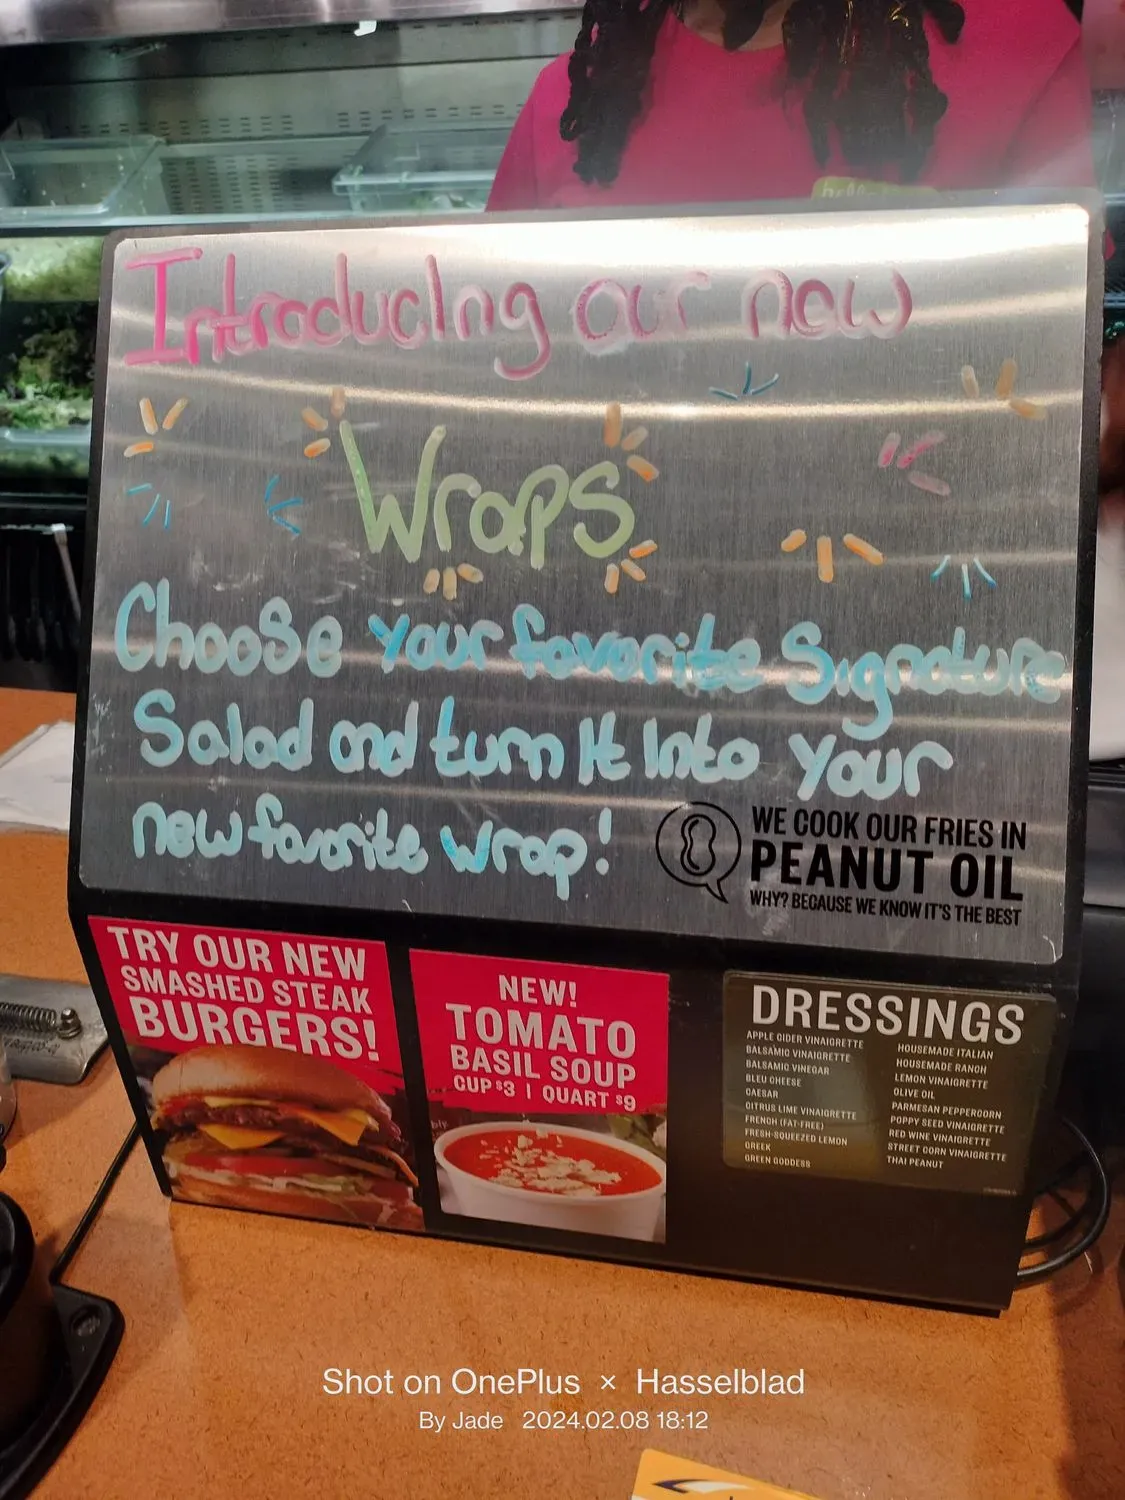 hello
Introducing our new
Wraps
Choose your favorite Signature
Salad and turn It Into your
new favorite wrap!
WE COOK OUR FRIES IN
PEANUT OIL
WHY? BECAUSE WE KNOW IT'S THE BEST
TRY OUR NEW
SMASHED STEAK
BURGERS!
NEW!
TOMATO
BASIL SOUP
CUP $3 | QUART $9
DRESSINGS
APPLE CIDER VINAIGRETTE
BALSAMIC VINAIGRETTE
BALSAMIC VINEGAR
BLEU CHEESE
CAESAR
CITRUS LIME VINAIGRETTE
FRENCH (FAT-FREE)
FRESH-SQUEEZED LEMON
GREEK
GREEN GODDESS
HOUSEMADE ITALIAN
HOUSEMADE RANCH
LEMON VINAIGRETTE
OLIVE OIL
PARMESAN PEPPERCORN
POPPY SEED VINAIGRETTE
RED WINE VINAIGRETTE
STREET CORN VINAIGRETTE
THAI PEANUT
Shot on OnePlus × Hasselblad
By Jade 2024.02.08 18:12